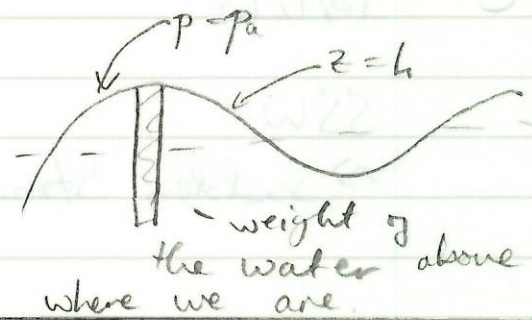 p = pa
z = h
- weight of
the water above
where we are.